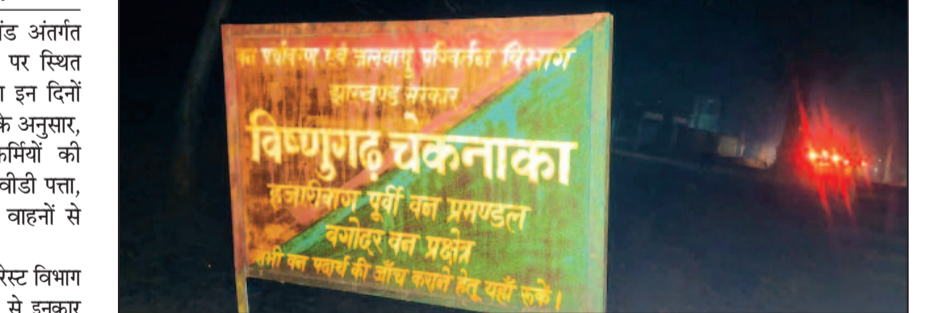 ंड अंतर्गत
पर स्थित
ा इन दिनों
के अनुसार,
कर्मियों की
वीडी पत्ता,
वाहनों से
रेस्ट विभाग
से इनकार
वन पर्यावरण एवं जलवायु परिवर्तन विभाग
झारखण्ड सरकार
विष्णुगढ़ चेकनाका
हजारीबाग पूर्वी वन प्रमण्डल
बगोदर वन प्रक्षेत्र
सभी वन पदार्थ की जाँच कराने हेतू यहाँ रूकें।